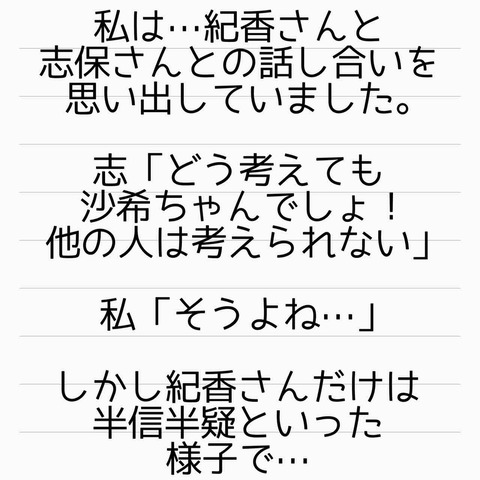 私は…紀香さんと
志保さんとの話し合いを
思い出していました。
志「どう考えても
沙希ちゃんでしょ！
他の人は考えられない」
私「そうよね…」
しかし紀香さんだけは
半信半疑といった
様子で…